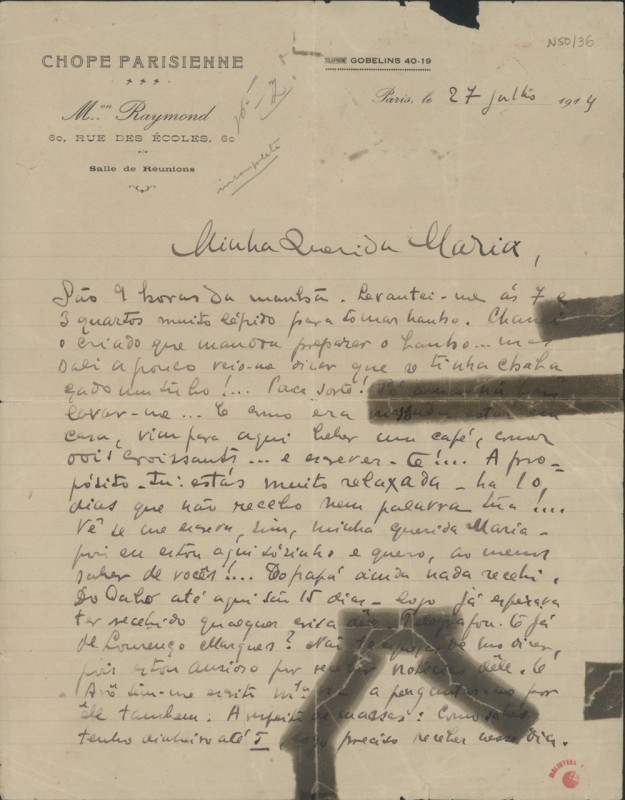 N50/36
CHOPE PARISIENNE
TELEPHONE GOBELINS 40-19
M.on Raymond
60, RUE DES ÉCOLES, 60
Salle de Réunions
incompleta
Paris, le 27 julho 1914
Minha Querida Maria,
São 9 horas da manhã. Levantei-me ás 7 e
3 quartos muito lépido para tomar banho. Chamei
o criado que mandou preparar o banho... mas
dali a pouco veio-me dizer que se tinha
um tubo!... Pouca sorte!
lavar-me... E como era
casa, vim para aqui beber um café, comer
dois croissants... e escrever-te!... A pro-
pósito - Tu: estás muito relaxada - ha 10
dias que não recebo nem palavra tua!...
Vê se me escreves, sim, minha querida Maria -
pois eu estou aqui sòsinho e quero, ao menos
saber de vocês!... Do papá ainda nada recebi.
Do Cabo até aqui são 15 dias - logo já esperava
ter recebido qualquer coisa dêle. Telegrafou-te já
de Lourenço Marques? Não te esqueças de mo dizer,
pois estou ancioso por receber noticias dêle. O
Avô tem-me escrito a perguntar-me por
êle tambem. A respeito de massas: Como sabes
tenho dinheiro até 1, logo preciso receber nesse dia.